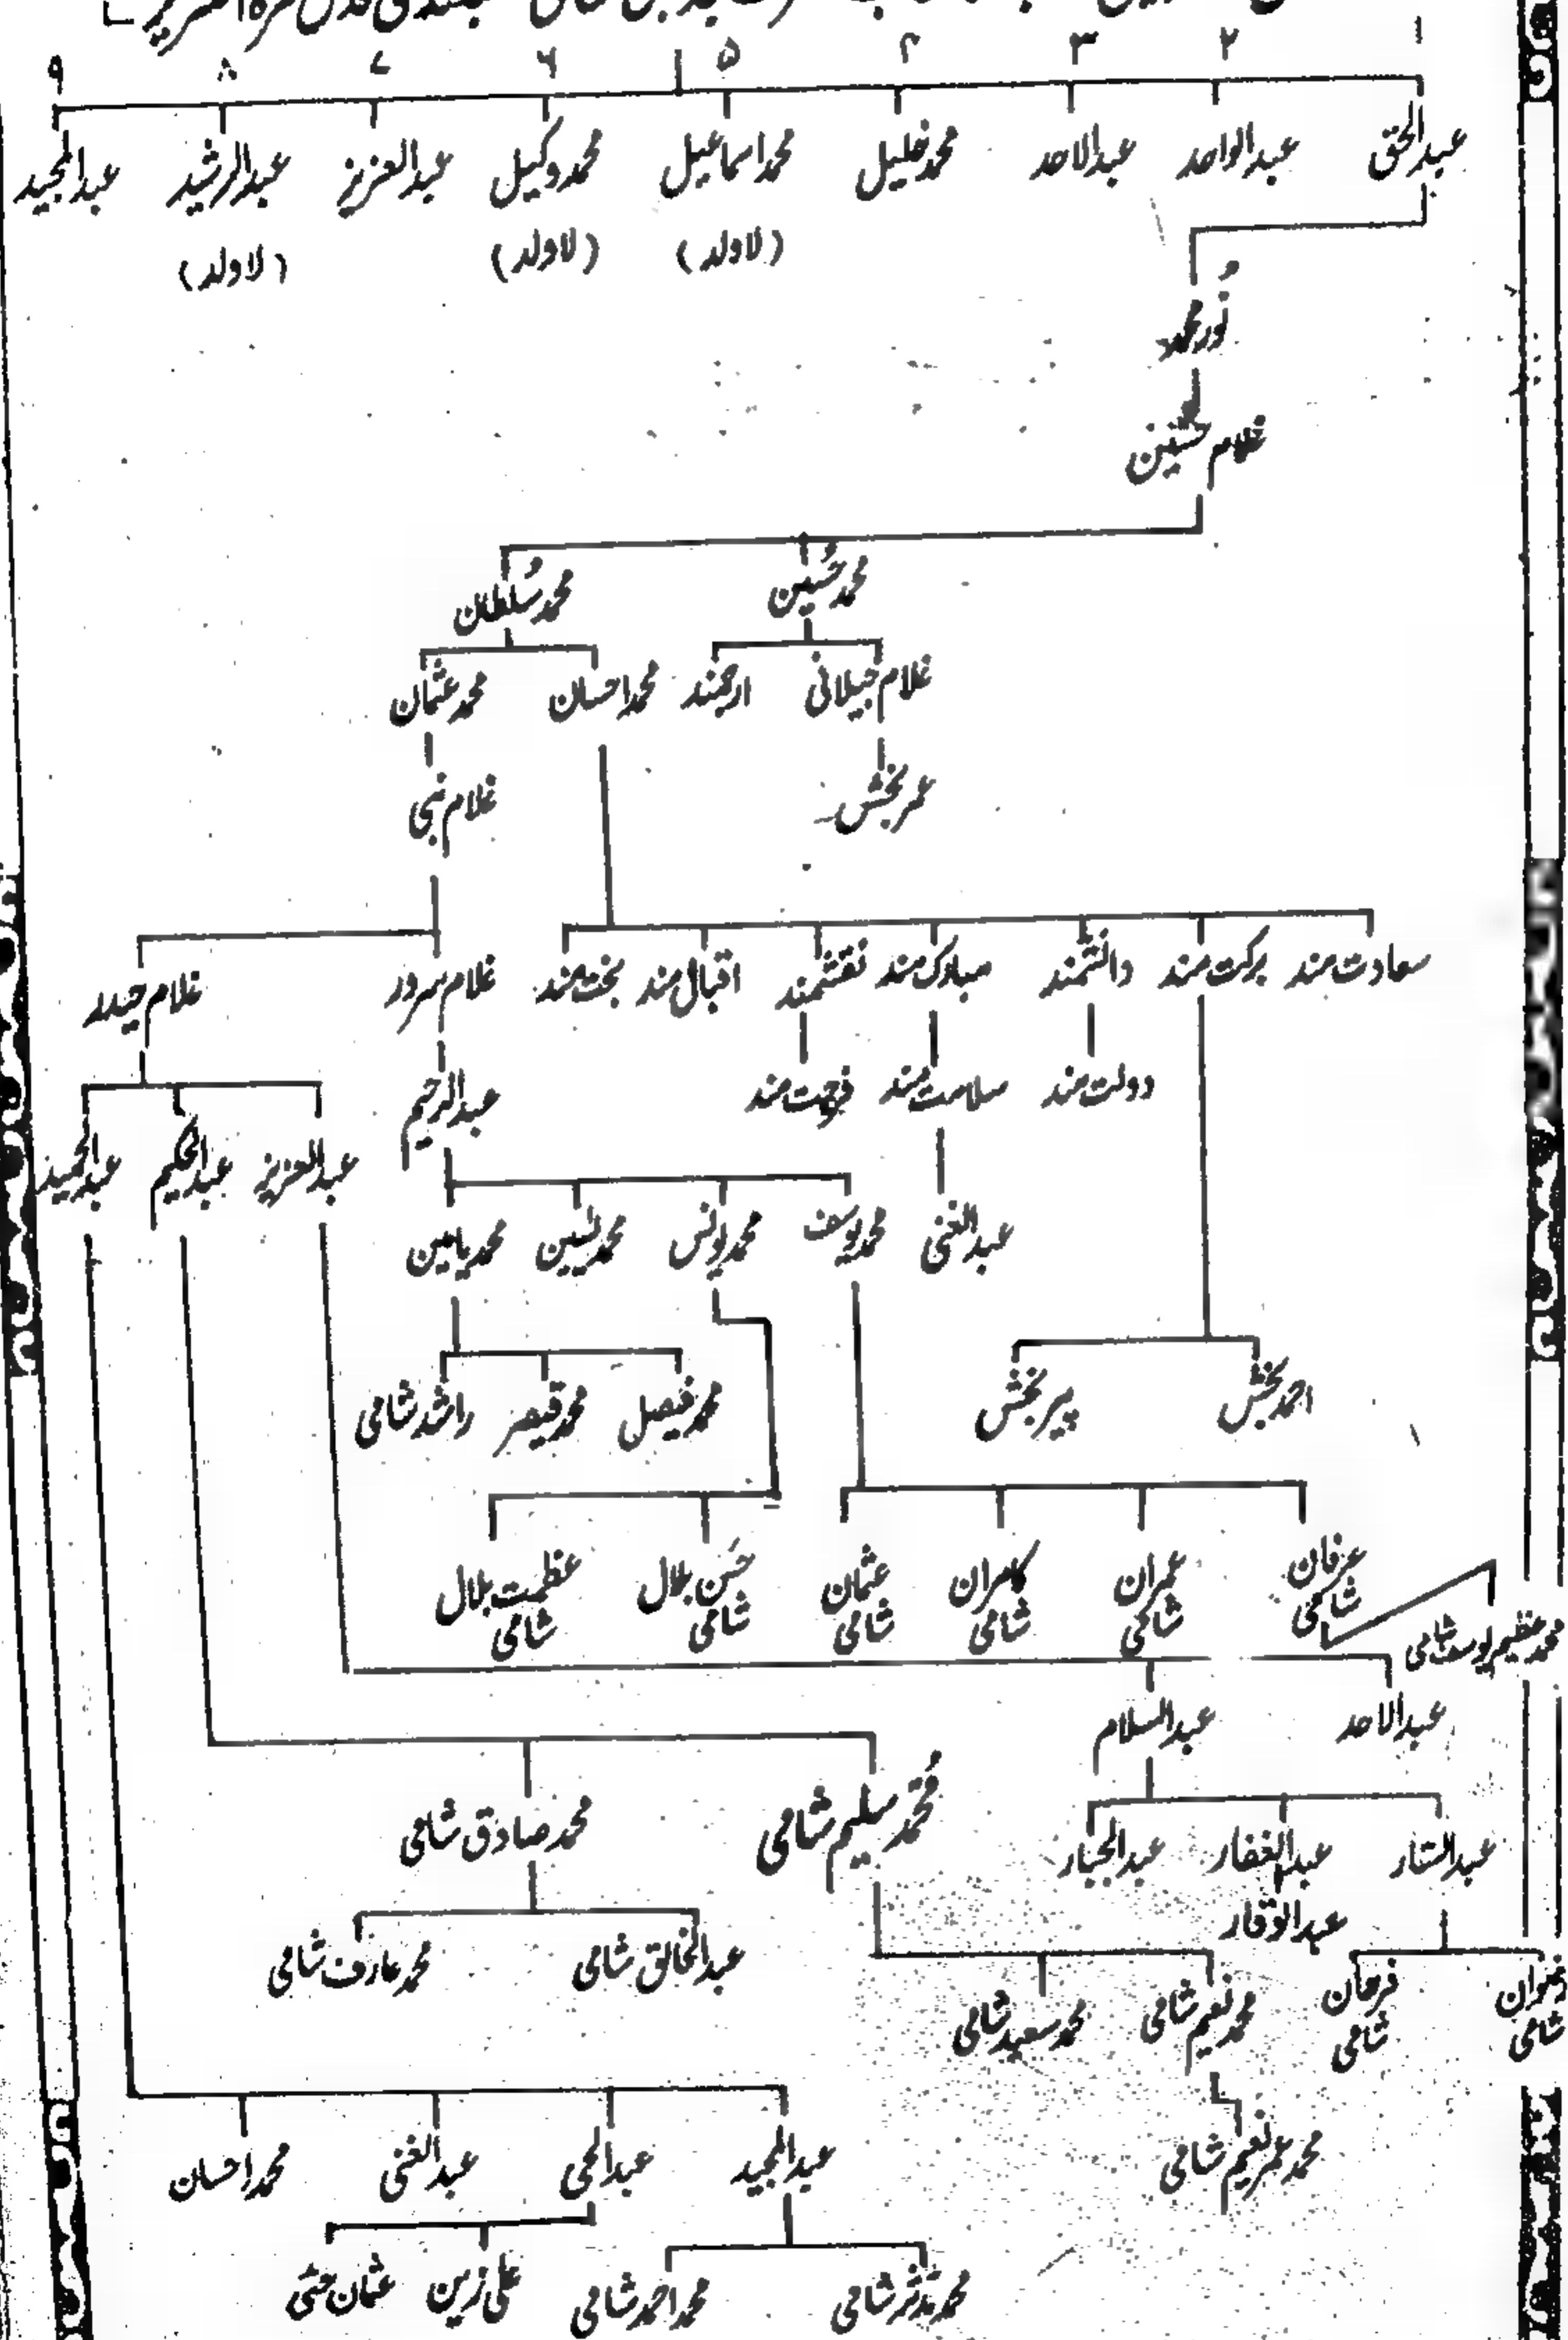 ۱ ۲ ۳ ۴ ۵ ۶ ۷ ۸ ۹
عبدالحق عبدالواحد عبدالاحد محمد خلیل محمد اسماعیل محمد وکیل عبدالعزیز عبدالرشید عبدالمجید
(لاولد) (لاولد) (لاولد)
نُور محمد
غلام حسین
محمد حُسین محمد سُلطان
غلام جیلانی ارجمند محمد احسان محمد عثمان
عمر بخش غلام نبی
سعادت مند برکت مند دانشمند مبارک مند نقشمند اقبال مند بخت مند غلام سرور غلام حیدر
دولت مند سلامت مند فرحت مند عبدالرحیم
عبدالعزیز عبدالحکیم عبدالحمید
عبدالغنی محمد یوسف محمد یونس محمد یٰسین محمد یامین
احمد بخش پیر بخش محمد فیصل محمد قیصر راشد شامی
عرفان شامی عمران شامی کامران شامی عثمان شامی حَسن بلال شامی عظمت بلال شامی
محمد عظیم یوسف شامی
عبدالاحد عبدالسلام
محمد سلیم شامی محمد صادق شامی
عبدالستار عبدالغفار عبدالجبار
عبدالوقار
عبدالخالق شامی محمد عارف شامی
رضوان شامی فرحان شامی محمد نعیم شامی محمد سعید شامی
محمد عمر نعیم شامی
عبدالمجید عبدالحی عبدالغنی محمد احسان
محمد مدثر شامی محمد احمد شامی علی زین عثمان